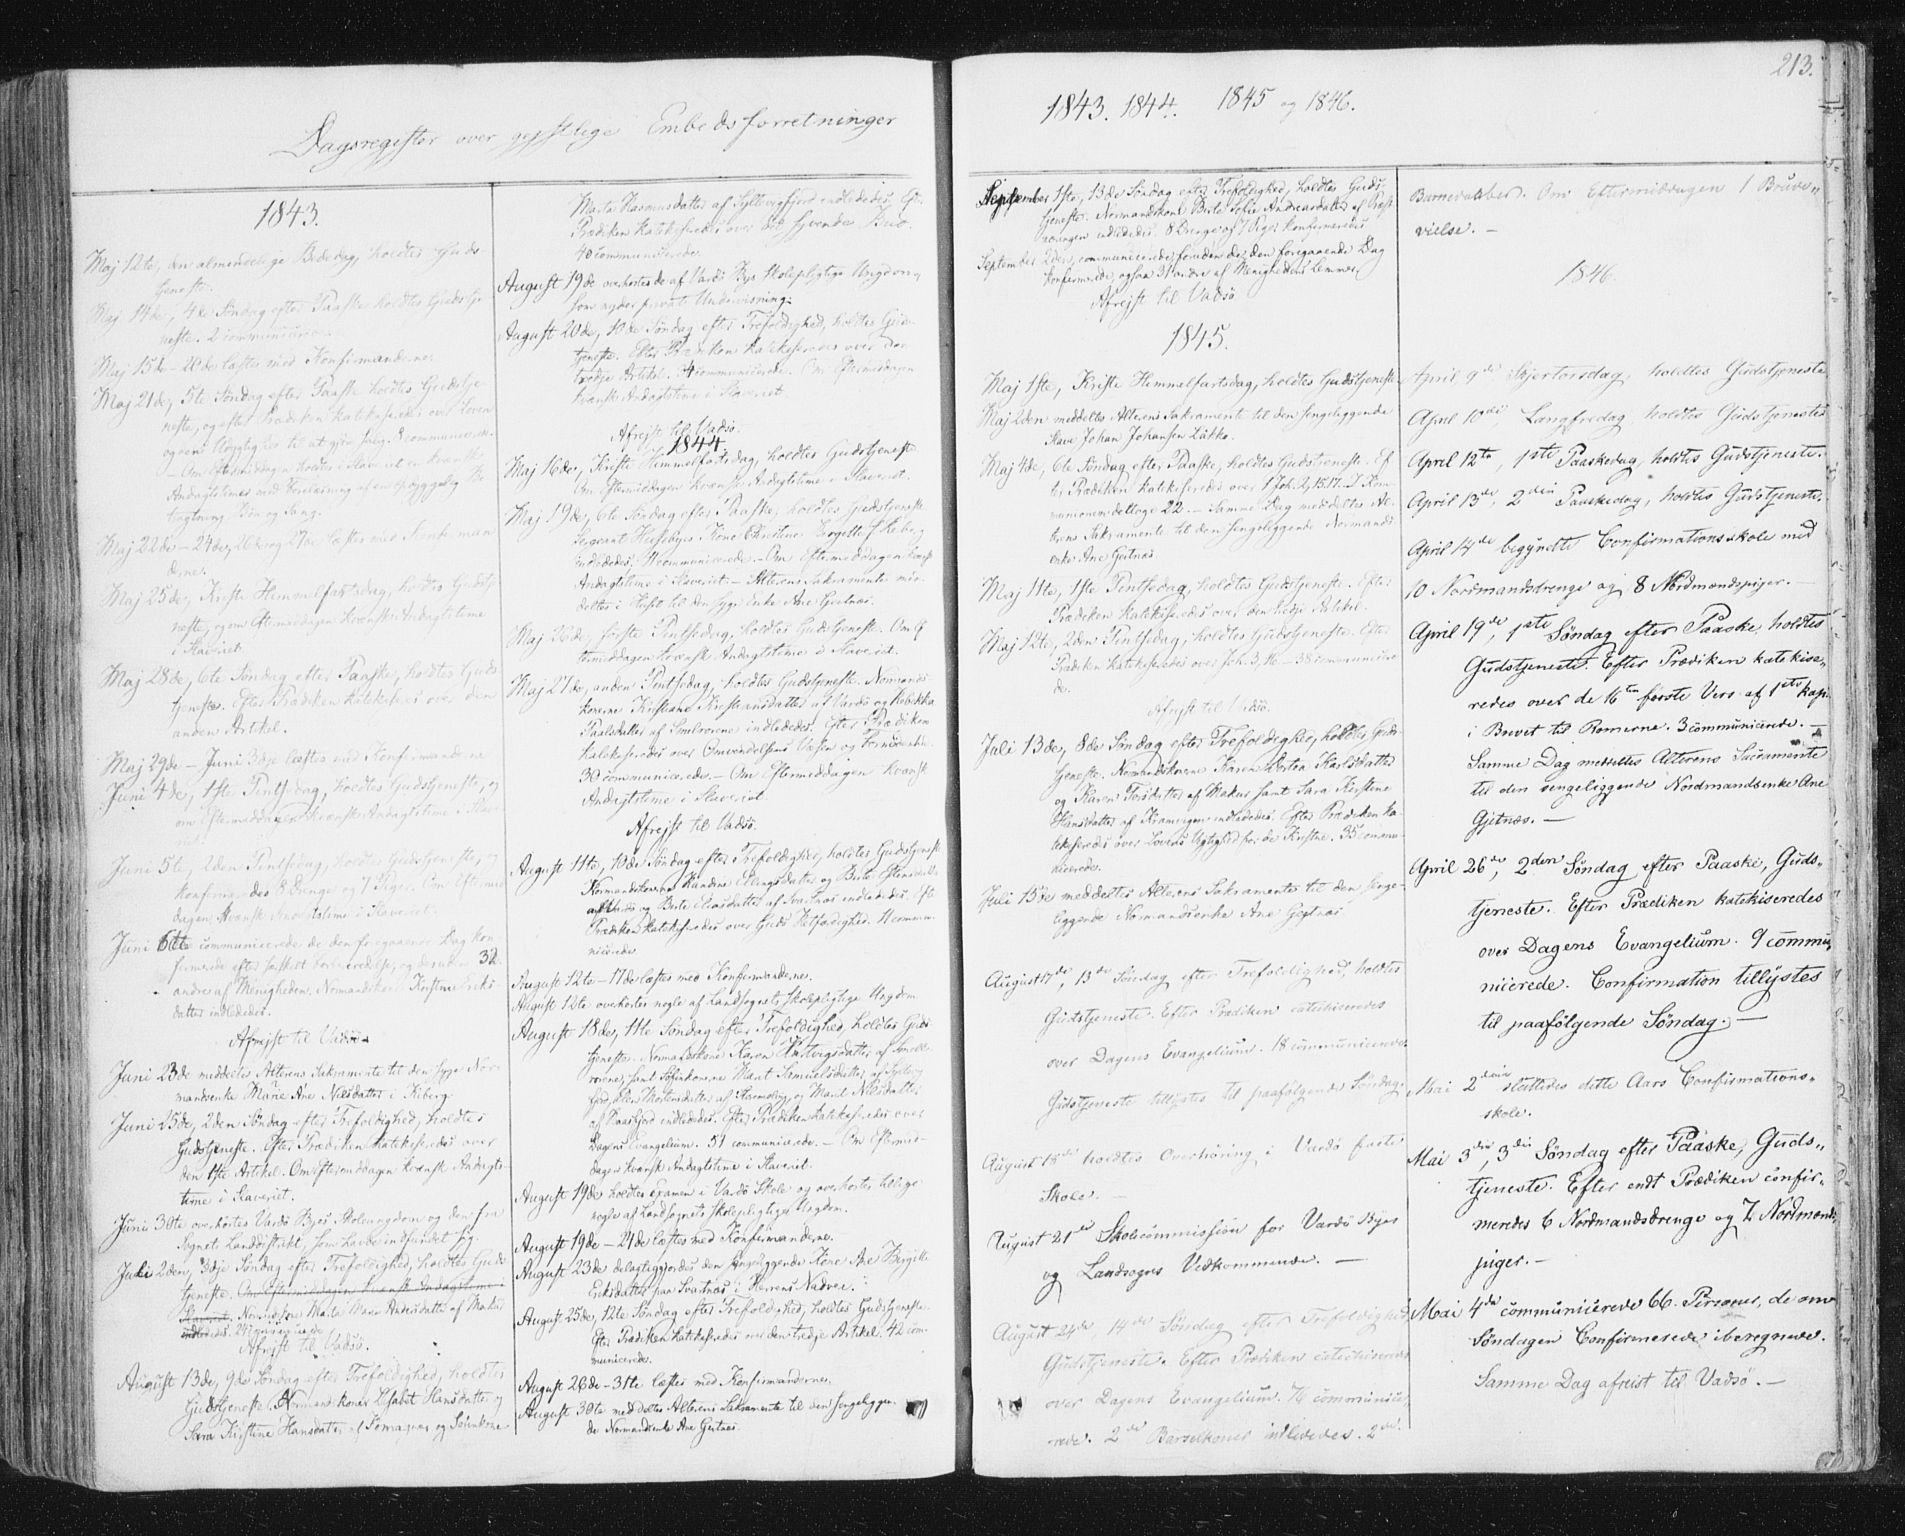 Dagsregister over gejstlige Embedsforretninger
1843.
Maj 12te, den almindelige Bededag, holdtes Guds-
tjeneste.
Maj 14de, 4de Søndag efter Paaske holdtes Gudstje-
neste. 2 communicerede.
Maj 15de - 20de læstes med Konfirmanderne.
Maj 21de, 5te Søndag efter Paaske holdtes Gudstje-
neste, og efter Prædiken katekiseredes over Loven
og vor Udygtighed til at gjøre
- Om Eftermiddagen holdtes i Slaveriet en kvænsk
Andagtstime med Forelæsning af en opbyggelig Be-
tragtning Bøn og Sang.
Maj 22de - 24de, 26de og 27de læstes med Konfirman
derne.
Maj 25de, Kristi Himmelfartsdag, holdtes Gudstje-
neste, og om Eftermiddagen kvænsk Andagtstime
i Slaveriet.
Maj 28de, 6te Søndag efter Paaske, holdtes Guds-
tjeneste. Efter Prædiken katekiseredes over den
anden Artikel.
Maj 29de - Juni 3dje læstes med Konfirmanderne
Juni 4de, 1ste Pintsedag, holdtes Gudstjeneste, og
om Eftermiddagen kvænsk Andagtstime i Slave-
riet.
Juni 5te, 2den Pintsedag, holdtes Gudstjeneste, og
konfirmeredes 8 Drenge og 7 Piger. Om Eftermid-
dagen kvænsk Andagtstime i Slaveriet.
Juni 6te communicerede de den foregaaende Dag kon-
firmerede efter holdt Forberedelse, og desuden 32
andre af Menigheden. Normandskonen Kirstine Eriks-
datter indlededes.
Afrejst til Vadsø.
Juni 23de meddeltes Alterens Sakramente til den syge Nor-
mandsenke Marie Ane Nilsdatter i Kiberg.
Juni 25de, 2den Søndag efter Trefoldighed, holdtes
Gudstjeneste. Efter Prædiken katekiseredes over
den 1ste Artikel. Om Eftermiddagen kvænsk Andagts-
time i Slaveriet.
Juni 30te overhørtes Vardø Byes Skoleungdom og den fra
Sognets Landdistrikt, som havde indfundet sig.
Juli 2den, 3dje Søndag efter Trefoldighed, holdtes Guds-
tjeneste. Om Eftermiddagen kvænsk Andagtstime i
Slaveriet. Normandskone Marta Marie Andersdatter af Makur
indlededes. 24 communicerede
Afrejst til Vadsø.
August 13de, 9de Søndag efter Trefoldighed, holdtes
Gudstjeneste. Normandskonen Elisabet Hansdatter og
Sara Kirstine Hansdatter af og Søenkone
Marta Rasmusdatter af Syltevigfjord indlededes. Eft.
Prædiken katekiseredes over det syvende Bud.
40 communicerede.
August 19de overhørtes de af Vardø Byes skolepligtige Ungdom,
som nyder privat Undervisning.
August 20de, 10de Søndag efter Trefoldighed, holdtes Guds-
tjeneste. Efter Prædiken katekiseredes over den
tredje Artikel. 4 communicerede. Om Eftermiddagen
kvænsk Andagtstime i Slaveriet.
Afrejst til Vadsø.
1844.
Maj 16de, Kristi Himmelfartsdag, holdtes Gudstjeneste
Om Eftermiddagen kvænsk Andagtstime i Slaveriet.
Maj 19de, 6te Søndag efter Paaske, holdtes Gudstjeneste
Sergeant Husebyes Kone Christine Torgette f. Heberg
indlededes. 4 communicerede. - Om Eftermiddagen kvænsk
Andagtstime i Slaveriet. - Alterens Sakramente med-
deltes i Huset til den syge Enke Ane Gjetnæs.
Maj 26de, første Pintsedag, holdtes Gudstjeneste. Om Ef-
termiddagen kvænsk Andagtstime i Slaveriet.
Maj 27de, anden Pintsedag, holdtes Gudstjeneste. Normands-
konerne Kirstiane Kirstiansdatter af Vardø og Rebekka
Paalsdatter af Smelrorene indlededes. Efter Prædiken
katekiseredes over Omvendelsens Væsen og Fornødenhed.
30 communicerede. - Om Eftermiddagen kvænsk
Andagtstime i Slaveriet.
Afrejst til Vadsø.
August 11te, 10de Søndag efter Trefoldighed, holdtes Gudstjeneste
Normandskonerne Kandine Ellingsdatter og Berte
af Vardø og Berte Eliasdatter af Svartnæs indlededes. Eft.
Prædiken katekiseredes over Guds Retfærdighed. 11 commu-
nicerede
August 12te - 17de læstes med Konfirmanderne.
August 12te overhørtes nogle af Landsognets skolepligtige Ungdom
August 18de, 11te Søndag efter Trefoldighed, holdtes Guds-
tjeneste. Normandskone Karen Hartvigsdatter af Smell-
rorene, samt Søfinkonerne Marit Samuelsdatter af Syltevig-
fjord, Mortensdatter af og Marit Nilsdatter
af Baasfjord indlededes. Efter Prædiken katekiseredes over
Dagens Evangelium. 51 communicerede. - Om Eftermid-
dagen kvænsk Andagtstime i Slaveriet.
August 19de holdtes Examen i Vardø Skole og overhørtes tillige
nogle af Landsognets skolepligtige Ungdom.
August 19de - 24de læstes med Konfirmanderne.
August 23de delagtiggjordes den sengeliggende Kone Ane Birgitte
Eriksdatter paa Svartnæs i Herrens Nadver.
August 25de, 12te Søndag efter Trefoldighed, holdtes Gudstjeneste.
Efter Prædiken katekiseredes over den tredje Artikel. 42 com-
municerede.
August 26de - 31te læstes med Konfirmanderne.
August 30te meddeltes Alterens Sakramente til den sengeliggen-
de Normandsenke Ane Gjetnæs.
213.
1843. 1844. 1845 og 1846.
September 1ste, 13de Søndag efter Trefoldighed, holdtes Guds-
tjeneste. Normandskone Berte Sofie Andreasdatter af
indlededes. 8 Drenge og 7 Piger konfirmeredes
September 2den, communicerede foruden de, den foregaaende Dag
konfirmerede, ogsaa 31 andre af Menighedens Lemmer.
Afrejst til Vadsø
1845.
Maj 1ste, Kristi Himmelfartsdag, holdtes Gudstjeneste
Maj 2den meddeltes Alterens Sakramente til den sengeliggende
Slave Johan Johansen Lukko.
Maj 4de, 6te Søndag efter Paaske, holdtes Gudstjeneste. Ef-
ter Prædiken katekiseredes over 1 Joh. 2, 15-17. I Kom-
munionen deltoge 22. - Samme Dag meddeltes Al-
terens Sakramente til den sengeliggende Normands-
enke Ane Gjetnæs
Maj 11te, 1ste Pintsedag, holdtes Gudstjeneste. Efter
Prædiken katekiseredes over den tredje Artikel.
Maj 12te, 2den Pintsedag, holdtes Gudstjeneste. Efter
Prædiken katekiseredes over Joh. 3, 16 - 38 communicere-
de.
Afrejst til Vadsø.
Juli 13de, 8de Søndag efter Trefoldighed, holdtes Guds-
tjeneste. Normandskonerne Karen Bertea Karlsdatter
og Karen Torsdatter af Makur samt Sara Kirstine
Hansdatter af Kramvigen indlededes. Efter Prædiken ka-
tekiseredes over Lovens Vigtighed for de Kristne. 35 commu-
nicerede.
Juli 15de meddeltes Alterens Sakramente til den senge-
liggende Normandsenke Ane Gjetnæs
August 17de, 13de Søndag efter Trefoldighed, holdtes
Gudstjeneste. Efter Prædiken catechiseredes
over Dagens Evangelium. 18 communicerede.
Gudstjeneste tillystes til paafølgende Søndag.
August 18de holdtes Overhøring i Vardø faste
Skole. -
August 21de Skolecommission for Vardø Byes
og Landsogns Vedkommende. -
August 24de, 14de Søndag efter Trefoldighed
Gudstjeneste. Efter Prædiken catechiseredes
over Dagens Evangelium. 74 communice-
rede. 2de Barselkoner indlededes. 2de
Barnedaaber. Om Eftermiddagen 1 Brude-
vielse. -
1846.
April 9de Skjertorsdag, holdtes Gudstjeneste
April 10de, Langfredag holdtes Gudstjeneste
April 12te, 1ste Paaskedag, holdtes Gudstjeneste.
April 13de, 2den Paaskedag, holdtes Gudstjeneste.
April 14de begyndte Confirmationsskole med
10 Nordmandsdrenge og 8 Nordmandspiger. -
April 19de, 1ste Søndag efter Paaske, holdtes
Gudstjeneste. Efter Prædiken katekise-
redes over de 16ten første Vers af 1ste Kap.
i Brevet til Romerne. 3 communicerede. -
Samme Dag meddeltes Alterens Sacramente
til den sengeliggende Nordmandsenke Ane
Gjetnæs. -
April 26de, 2den Søndag efter Paaske, Guds-
tjeneste. Efter Prædiken katekiseredes
over Dagens Evangelium. 9 commu-
nicerede. Confirmation tillystes
til paafølgende Søndag. -
Mai 2den sluttedes dette Aars Confirmations-
skole.
Mai 3die, 3die Søndag efter Paaske, Guds-
tjeneste. Efter endt Prædiken confir-
meredes 6 Nordmandsdrenge og 7 Nordmands-
piger. -
Mai 4de communicerede 66 Personer, de om
Søndagen Confirmerede iberegnede.
Samme Dag afreist til Vadsø. -